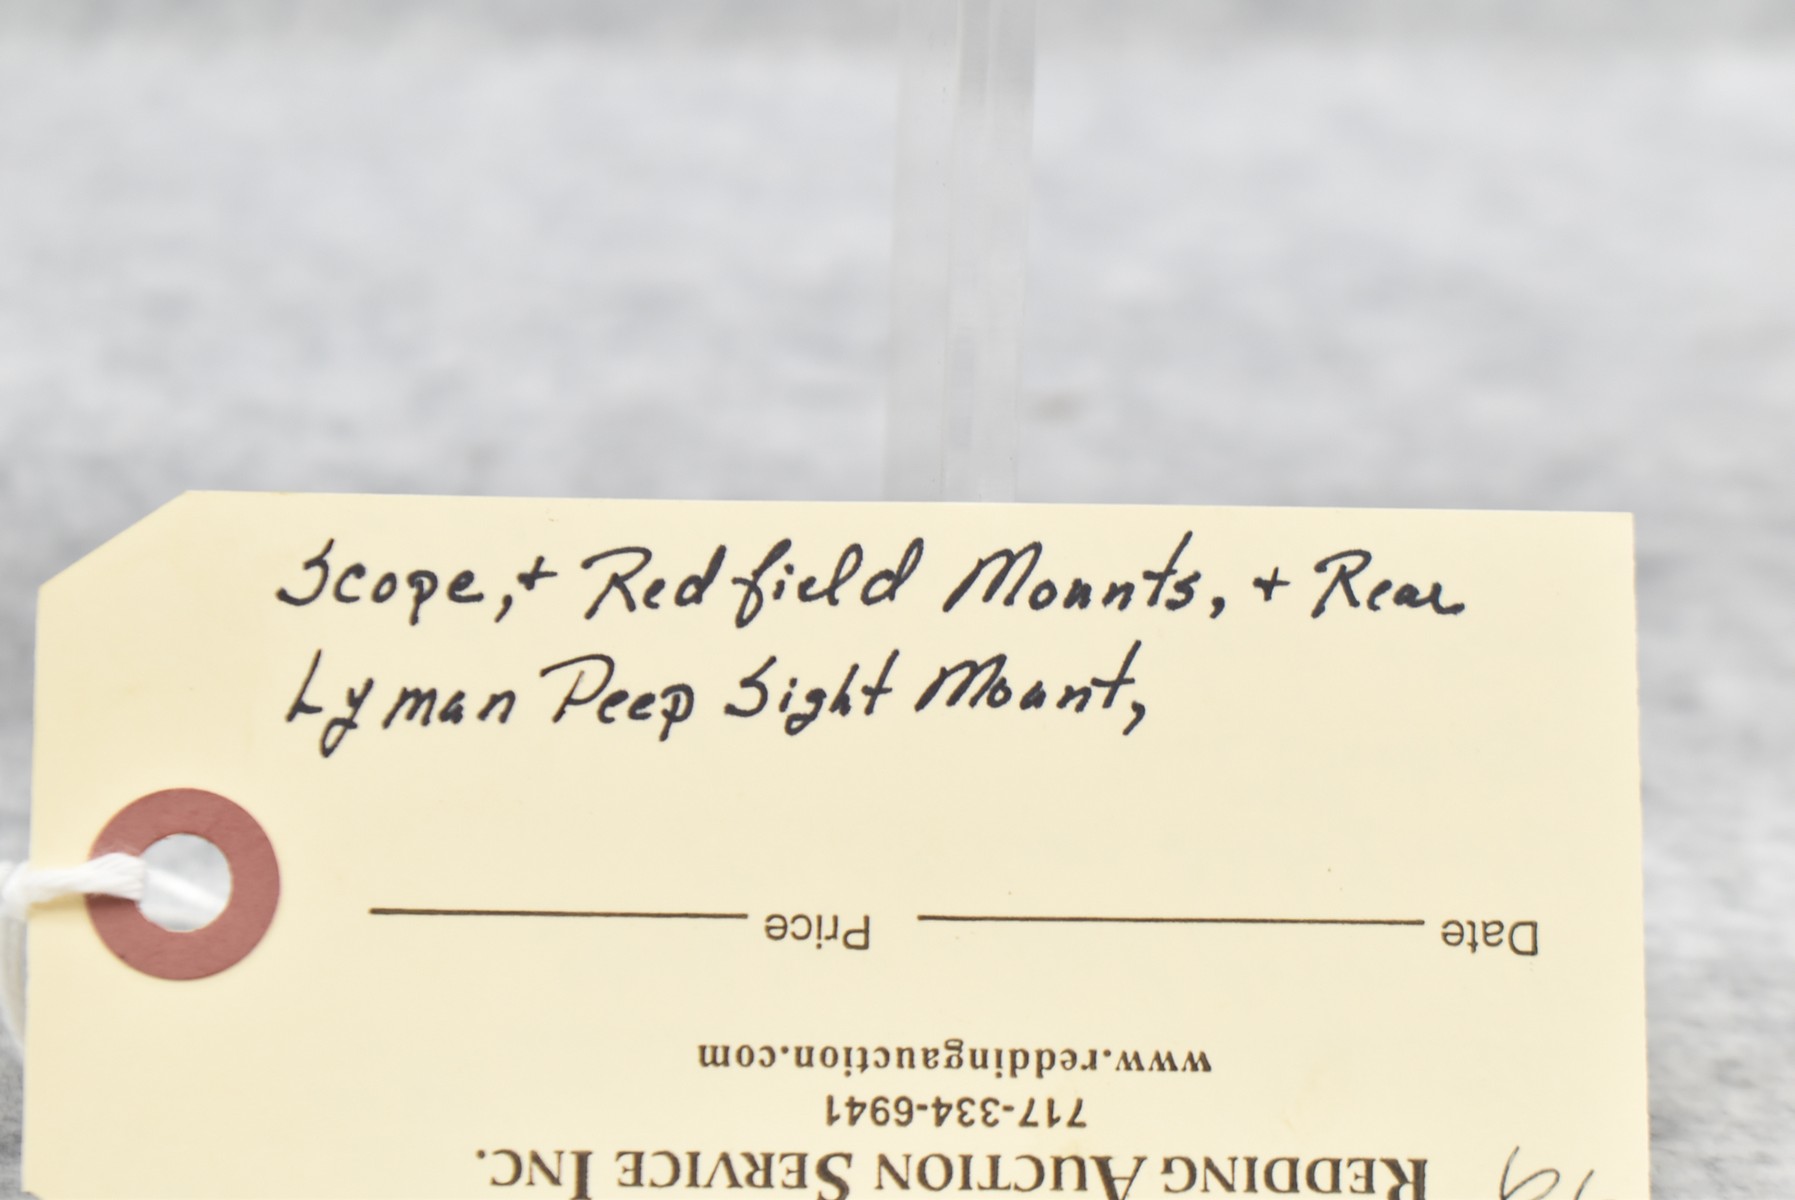 Scope, + Redfield Mounts, + Rear
Lyman Peep Sight Mount,
Redding Auction Service Inc.
717-334-6941
www.reddingauction.com
Date Price